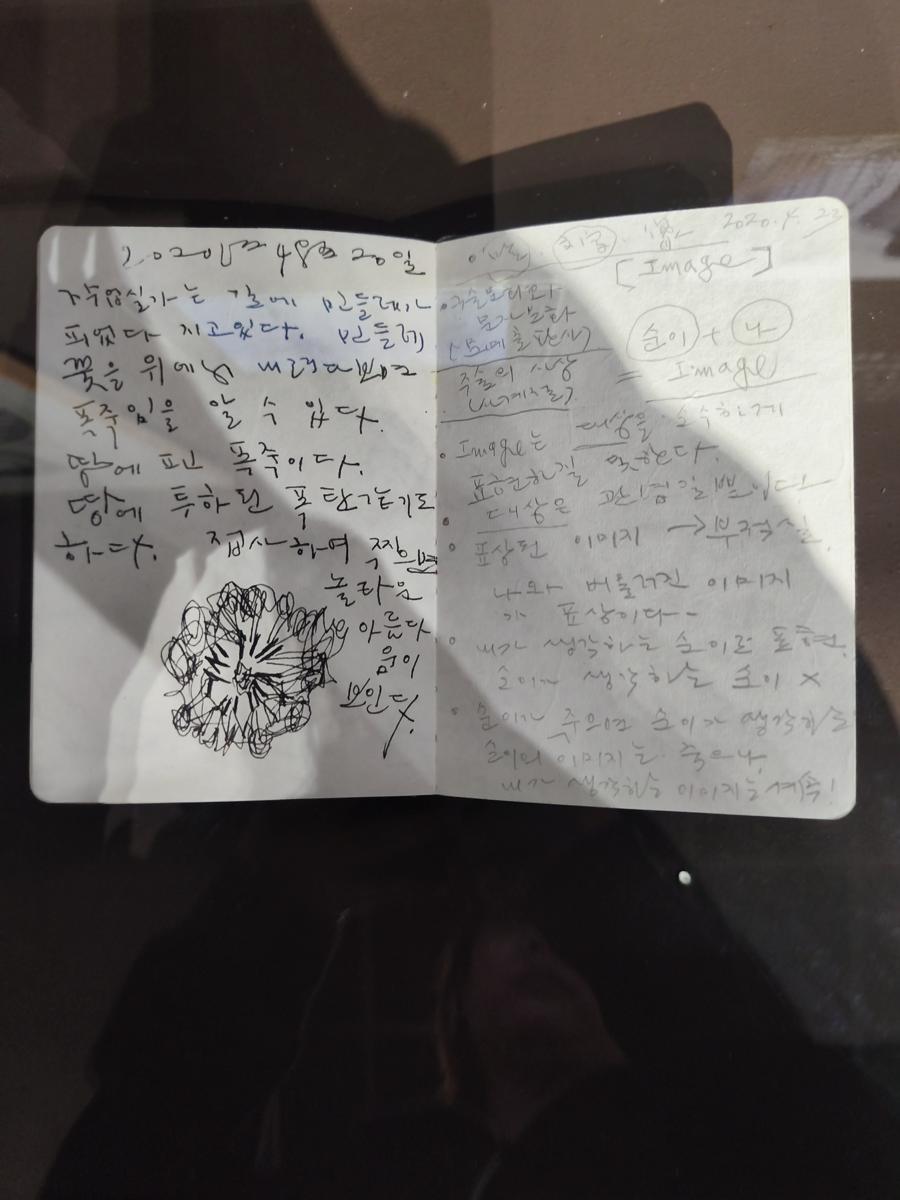 2020년 4월 20일
작업실가는 길에 민들레가
피었다 지고있다. 민들레
꽃을 위에서 내려다보면
폭죽임을 알 수 있다.
땅에 핀 폭죽이다.
땅에 투하된 폭탄같기도
하다. 접사하여 찍으면
놀라운
의 아름다
움이
보인다.
2020. 4. 23
[Image]
순이 + 나
= Image
주술의 사상
Image는 대상을 순수하게
표현하길 원한다.
대상은 관념일뿐이다
표상된 이미지 → 부적절
나와 버물려진 이미지
가 표상이다
내가 생각하는 순이로 표현.
순이가 생각하는 순이 X
순이가 죽으면 순이가 생각하는
순이의 이미지는 죽으나,
내가 생각하는 이미지는 계속!